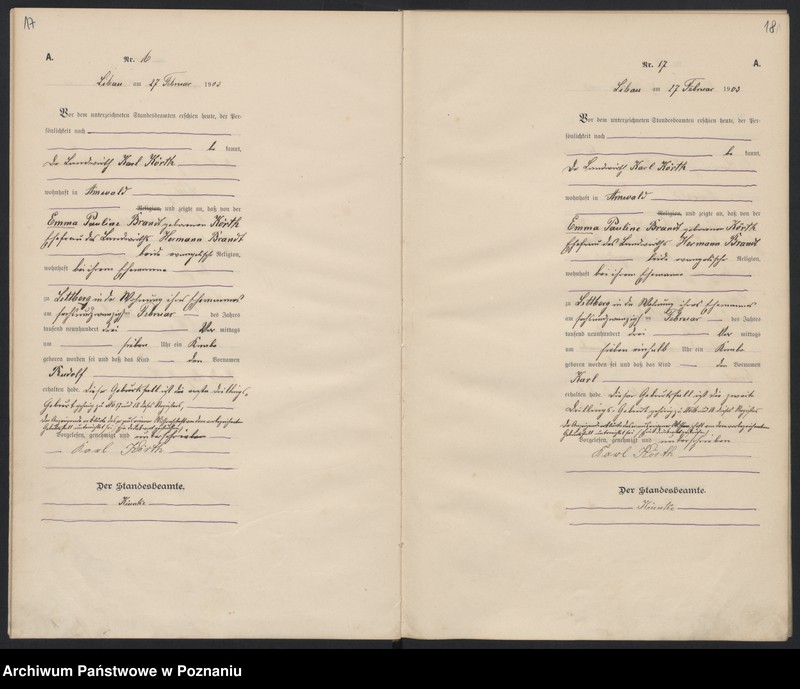 17
A.
Nr. 16
Libau am 27 Februar 1903
Vor dem unterzeichneten Standesbeamten erschien heute, der Per-
sönlichkeit nach
be kannt,
der Landwirth Karl Körth
wohnhaft in Arnswald
Religion, und zeigte an, daß von der
Emma Pauline Brandt geborenen Körth
Ehefrau des Landwirths Hermann Brandt
beide evangelisch Religion,
wohnhaft bei ihrem Ehemanne
zu Lettberg in der Wohnung ihres Ehemannes
am sechsundzwanzigsten Februar des Jahres
tausend neunhundert drei Vor mittags
um sieben Uhr ein Knabe
geboren worden sei und daß das Kind den Vornamen
Rudolf
erhalten habe. Dieser Geburtsfall ist die erste Drillings-
Geburt, gehörig zu № 17 und 18 dieses Registers,
Vorgelesen, genehmigt und unterschrieben
Karl Körth
Der Standesbeamte.
18
Nr. 17
A.
Libau am 27 Februar 1903
Vor dem unterzeichneten Standesbeamten erschien heute, der Per-
sönlichkeit nach
be kannt,
der Landwirth Karl Körth
wohnhaft in Arnswald
Religion, und zeigte an, daß von der
Emma Pauline Brandt geborenen Körth
Ehefrau des Landwirths Hermann Brandt
beide evangelischer Religion,
wohnhaft bei ihrem Ehemanne
zu Lettberg in der Wohnung ihres Ehemannes
am sechsundzwanzigsten Februar des Jahres
tausend neunhundert drei Vor mittags
um sieben einhalb Uhr ein Knabe
geboren worden sei und daß das Kind den Vornamen
Karl
erhalten habe. Dieser Geburtsfall ist die zweite
Drillings-Geburt gehörig zu № 16 und 18 dieses Registers
Vorgelesen, genehmigt und unterschrieben
Karl Körth
Der Standesbeamte.
Archiwum Państwowe w Poznaniu